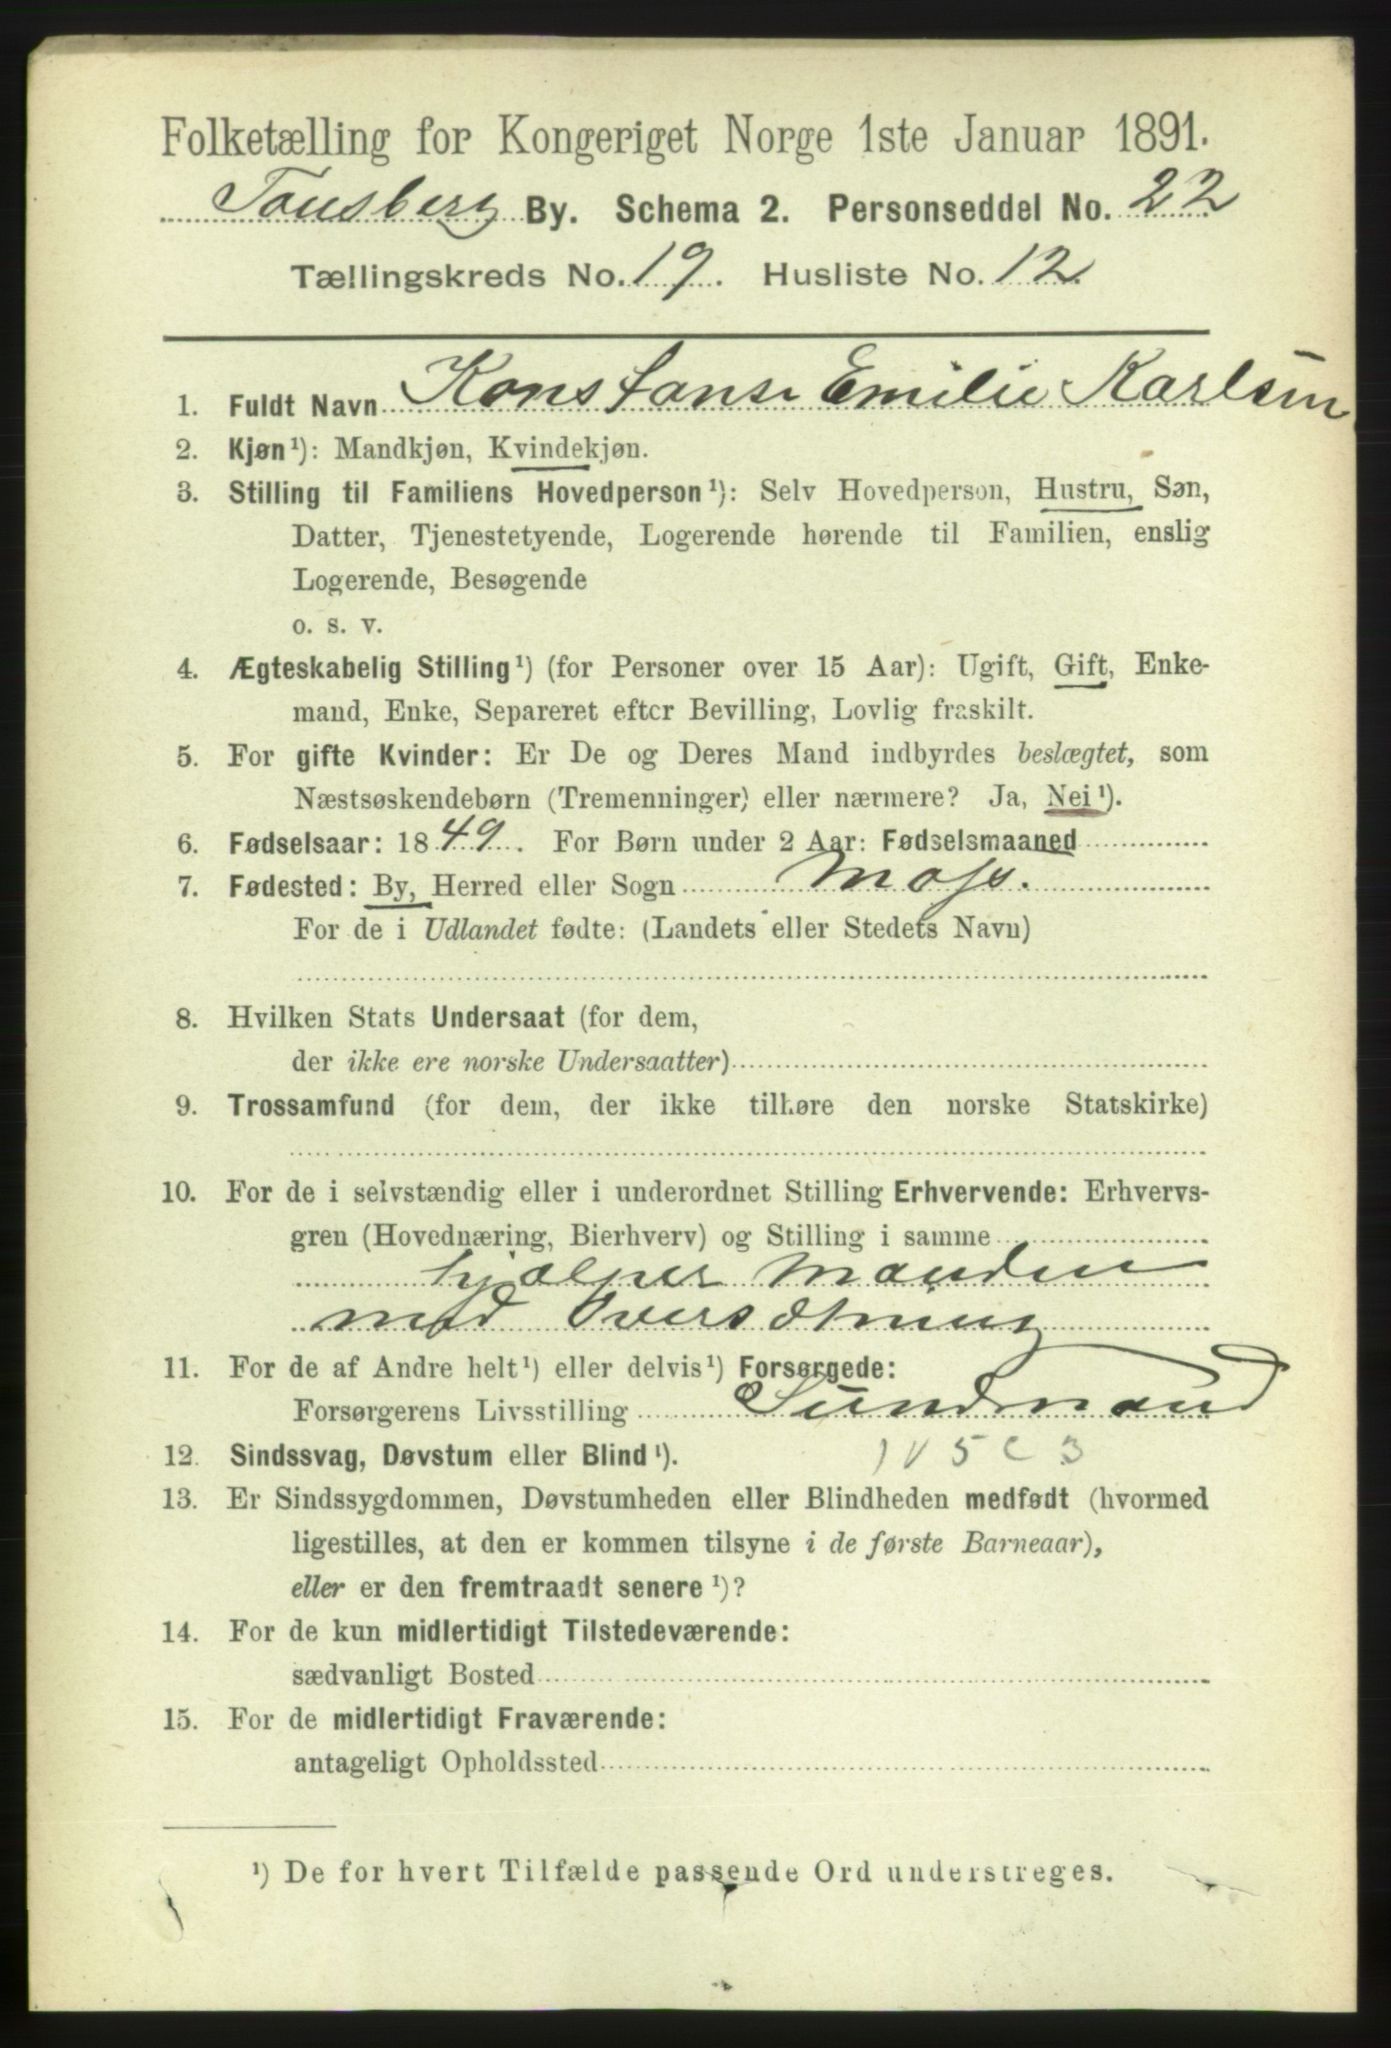 Folketælling for Kongeriget Norge 1ste Januar 1891.
Tønsberg By. Schema 2. Personseddel No. 22
Tællingskreds No. 19. Husliste No. 12.
1. Fuldt Navn Konstanse Emilie Karlsen
2. Kjøn¹): Mandkjøn, Kvindekjøn.
3. Stilling til Familiens Hovedperson¹): Selv Hovedperson, Hustru, Søn,
Datter, Tjenestetyende, Logerende hørende til Familien, enslig
Logerende, Besøgende
o. s. v.
4. Ægteskabelig Stilling¹) (for Personer over 15 Aar): Ugift, Gift, Enke-
mand, Enke, Separeret efter Bevilling, Lovlig fraskilt.
5. For gifte Kvinder: Er De og Deres Mand indbyrdes beslægtet, som
Næstsøskendebørn (Tremenninger) eller nærmere? Ja, Nei¹).
6. Fødselsaar: 1849. For Børn under 2 Aar: Fødselsmaaned
7. Fødested: By, Herred eller Sogn Moss.
For de i Udlandet fødte: (Landets eller Stedets Navn)
8. Hvilken Stats Undersaat (for dem,
der ikke ere norske Undersaatter)
9. Trossamfund (for dem, der ikke tilhøre den norske Statskirke)
10. For de i selvstændig eller i underordnet Stilling Erhvervende: Erhvervs-
gren (Hovednæring, Bierhverv) og Stilling i samme
hjælper Manden
med Oversætning
11. For de af Andre helt¹) eller delvis¹) Forsørgede:
Forsørgerens Livsstilling Sundmand
12. Sindssvag, Døvstum eller Blind¹).
13. Er Sindssygdommen, Døvstumheden eller Blindheden medfødt (hvormed
ligestilles, at den er kommen tilsyne i de første Barneaar),
eller er den fremtraadt senere¹)?
14. For de kun midlertidigt Tilstedeværende:
sædvanligt Bosted
15. For de midlertidigt Fraværende:
antageligt Opholdssted
¹) De for hvert Tilfælde passende Ord understreges.